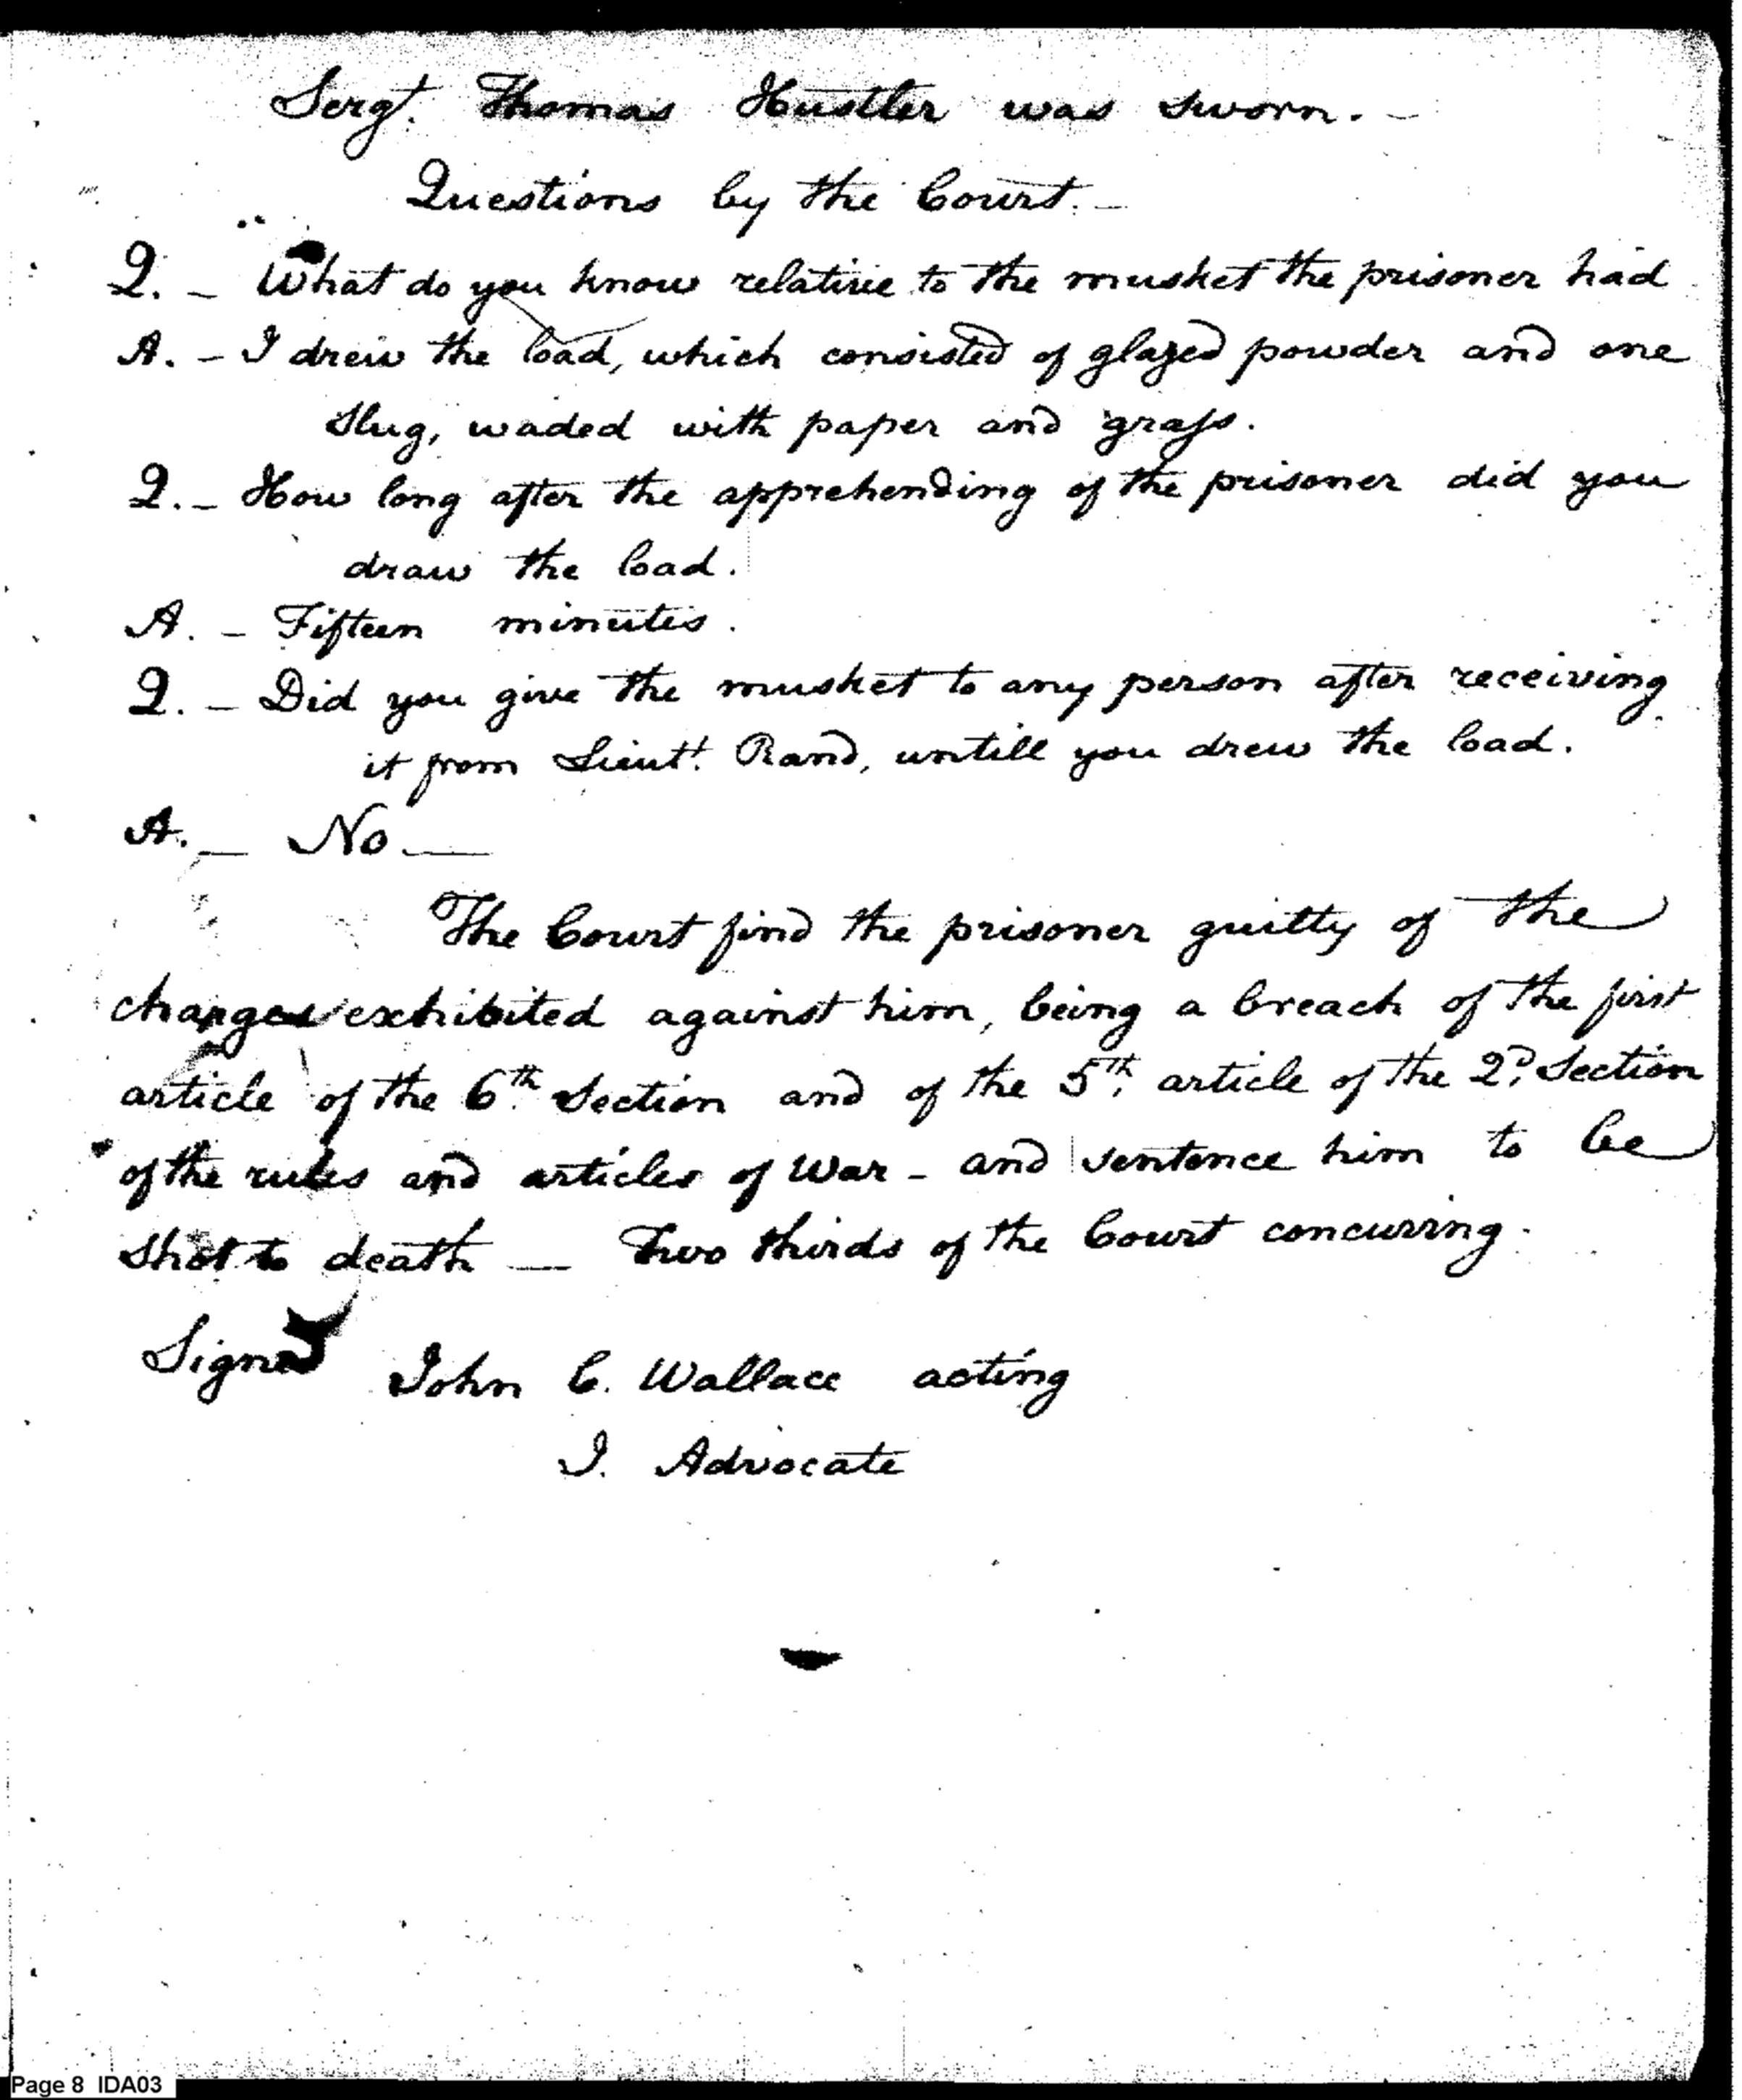 Sergt. Thomas Hustler was sworn. -
Questions by the Court. -
Q. - What do you know relative to the musket the prisoner had
A. - I drew the load, which consisted of glazed powder and one
slug, waded with paper and grass.
Q. - How long after the apprehending of the prisoner did you
draw the load.
A. - Fifteen minutes.
Q. - Did you give the musket to any person after receiving
it from Lieut. Rand, untill you drew the load.
A. - No -
The Court find the prisoner guilty of the
charges exhibited against him, being a breach of the first
article of the 6th. Section and of the 5th. article of the 2d. Section
of the rules and articles of War - and sentence him to be
shot to death - Two thirds of the Court concurring.
Signed John C. Wallace acting
J. Advocate
Page 8 IDA03